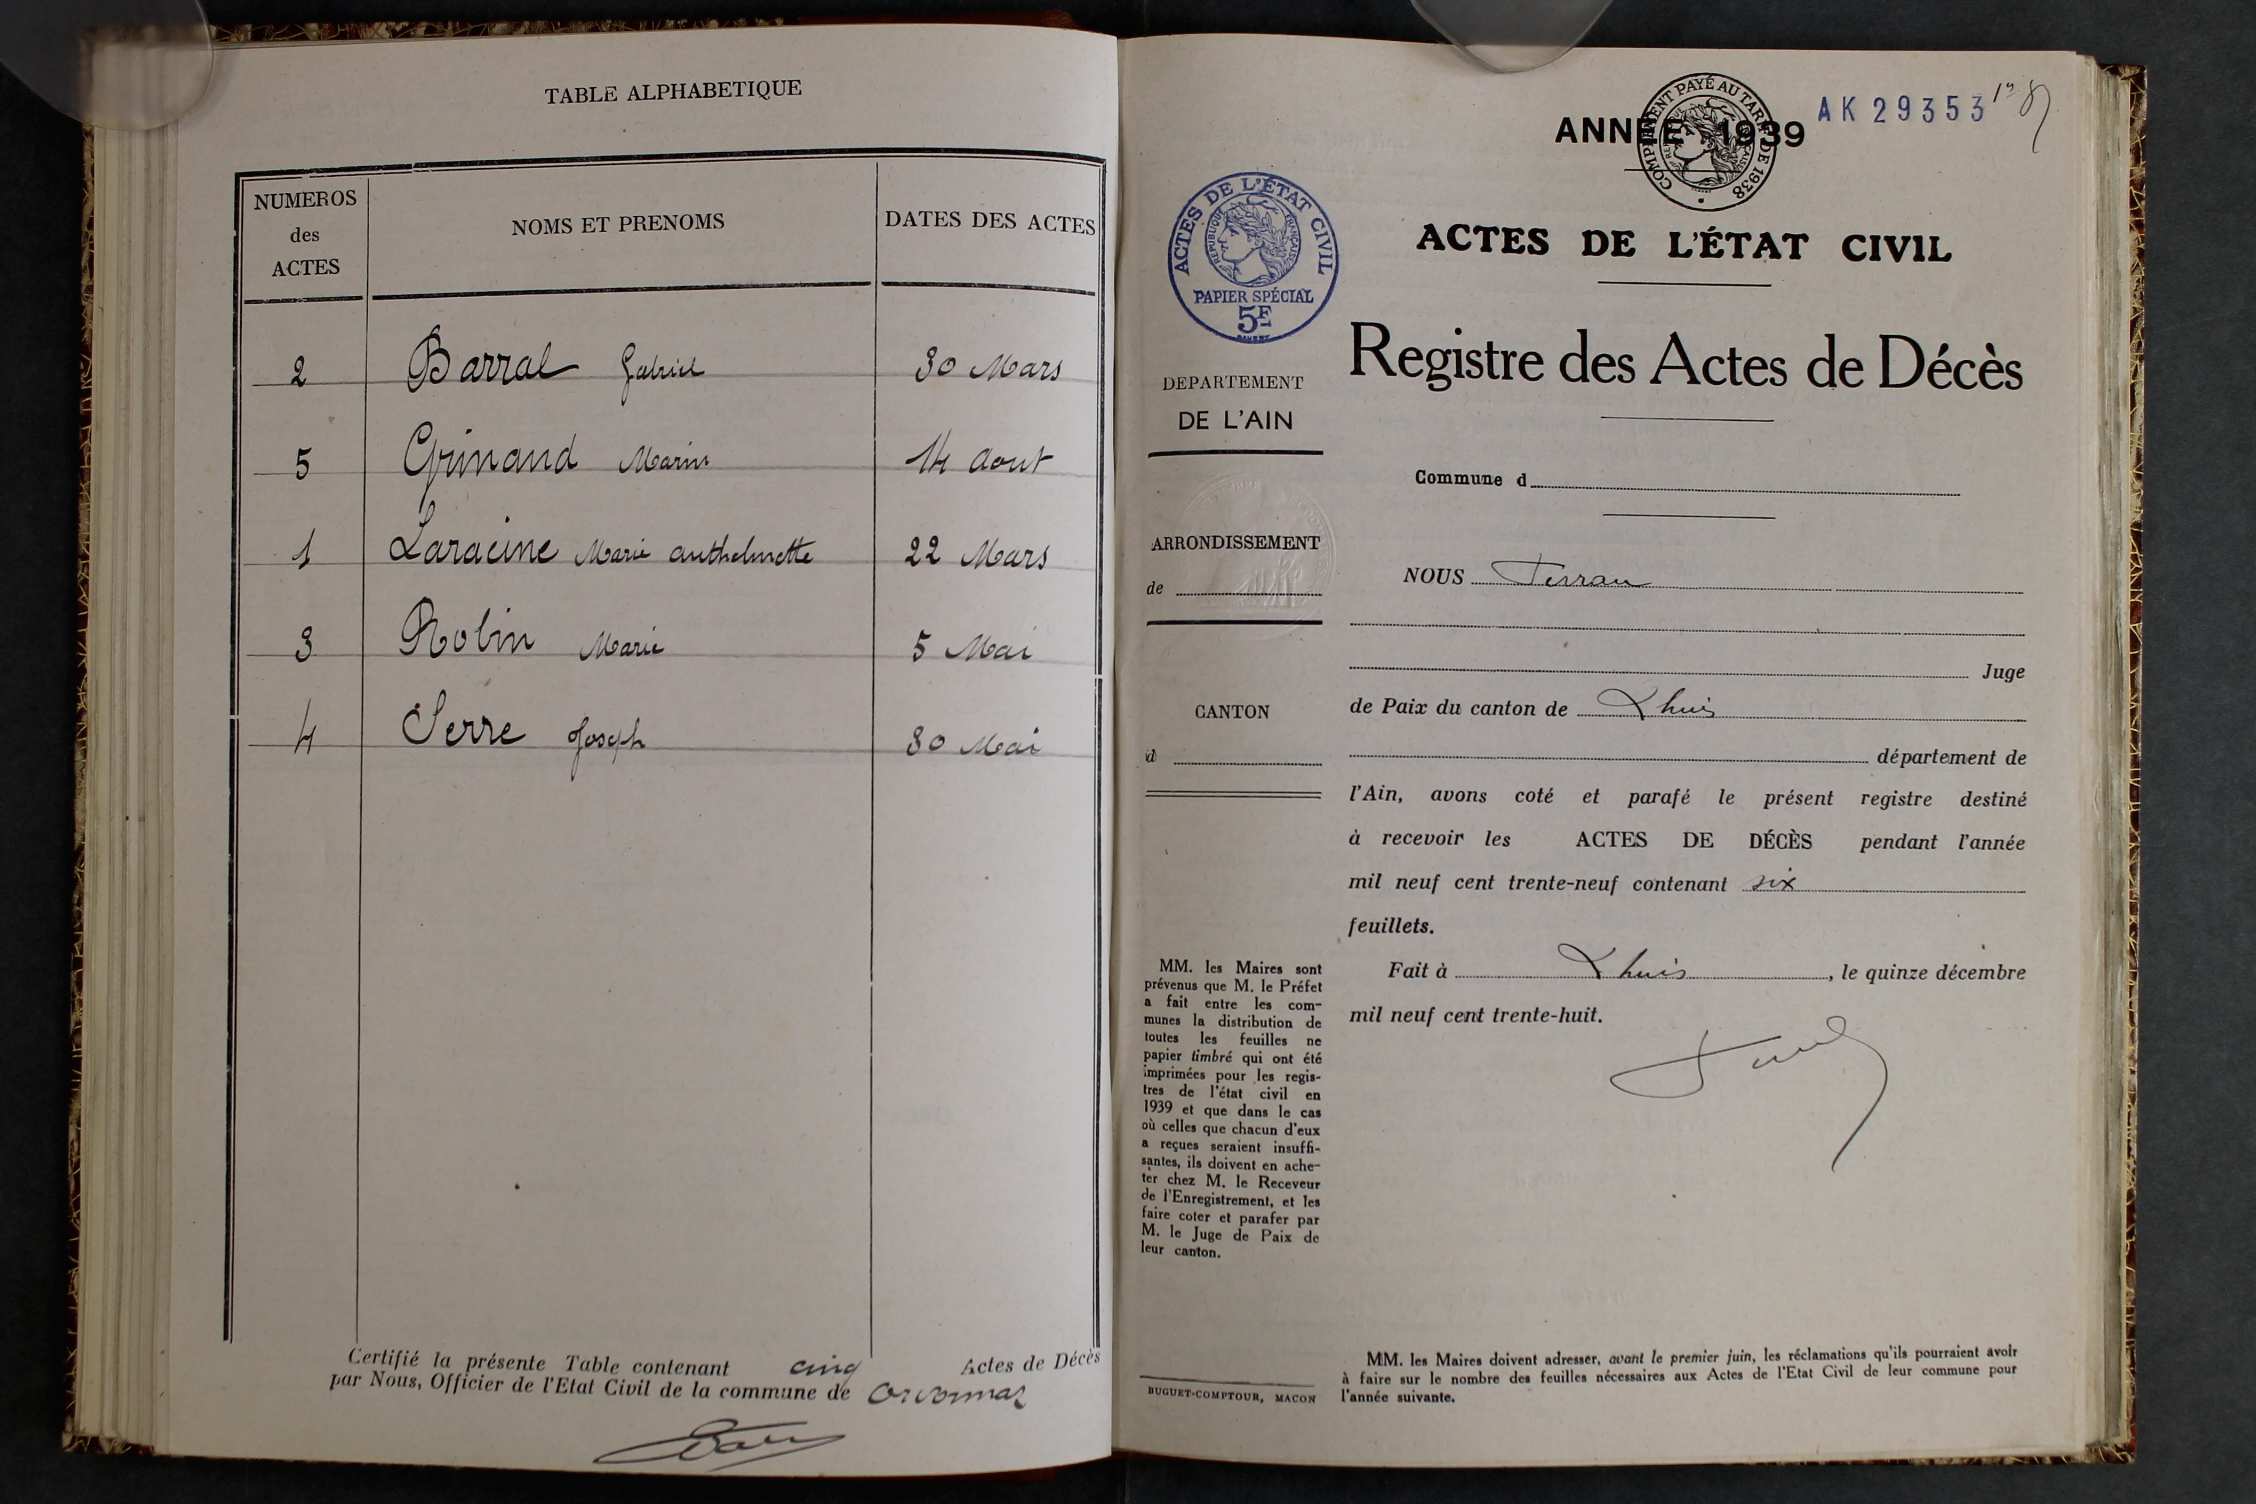 TABLE ALPHABETIQUE
NUMEROS
des
ACTES
NOMS ET PRENOMS
DATES DES ACTES
2 Barral Gabriel 30 Mars
5 Grinand 14 aout
1 Laracine Marie anthelmette 22 Mars
3 Robin Marie 5 Mai
4 Serre Joseph 30 Mai
Certifié la présente Table contenant cinq Actes de Décès
par Nous, Officier de l'Etat Civil de la commune de
COMPLÉMENT PAYÉ AU TARIF DE 1938
AK 29353
ANNÉE 1939
ACTES DE L'ÉTAT CIVIL
RÉPUBLIQUE FRANÇAISE
PAPIER SPÉCIAL
5F
ACTES DE L'ÉTAT CIVIL
Registre des Actes de Décès
DEPARTEMENT
DE L'AIN
ARRONDISSEMENT
de
CANTON
d
MM. les Maires sont
prévenus que M. le Préfet
a fait entre les com-
munes la distribution de
toutes les feuilles ne
papier timbré qui ont été
imprimées pour les regis-
tres de l'état civil en
1939 et que dans le cas
où celles que chacun d'eux
a reçues seraient insuffi-
santes, ils doivent en ache-
ter chez M. le Receveur
de l'Enregistrement, et les
faire coter et parafer par
M. le Juge de Paix de
leur canton.
BUGUET-COMPTOUR, MACON
Commune d
NOUS
Juge
de Paix du canton de Lhuis
département de
l'Ain, avons coté et parafé le présent registre destiné
à recevoir les ACTES DE DÉCÈS pendant l'année
mil neuf cent trente-neuf contenant six
feuillets.
Fait à Lhuis, le quinze décembre
mil neuf cent trente-huit.
MM. les Maires doivent adresser, avant le premier juin, les réclamations qu'ils pourraient avoir
à faire sur le nombre des feuilles nécessaires aux Actes de l'Etat Civil de leur commune pour
l'année suivante.